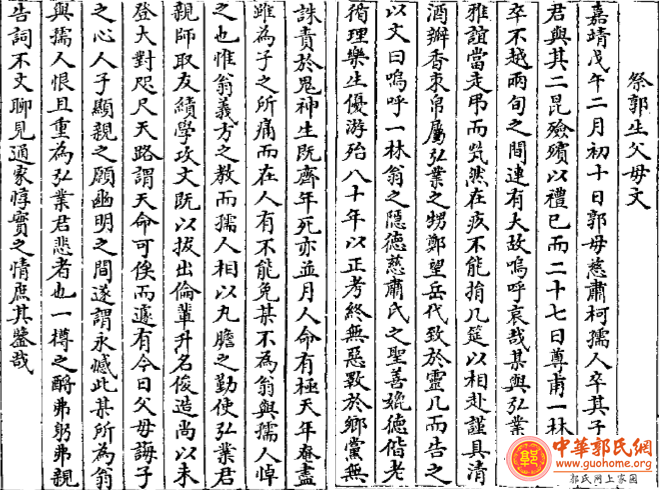 祭郭生父母文
嘉靖戊午二月初十日郭母慈肅柯孺人卒其子
君與其二昆殮殯以禮已而二十七日尊甫一林
卒不越兩旬之間連有大故嗚呼哀哉某與弘業
雅誼當走弔而煢然在疚不能捐几筵以相赴謹具清
酒瓣香束帛屬弘業之甥鄭望岳代致於靈几而告之
以文曰嗚呼一林翁之隱德慈肅氏之聖善媲德偕老
循理樂生優游殆八十年以正考終無惡斁於鄉黨無
誅責於鬼神生既齊年死亦並月人命有極天年奄盡
雖為子之所痛而在人有不能免某不為翁與孺人悼
之也惟翁義方之教而孺人相以丸膽之勤使弘業君
親師取友績學攻文既以拔出倫輩升名俊造尚以未
登大對咫尺天路謂天命可俟而遽有今日父母誨子
之心人子顯親之願幽明之間遂謂永憾此某所為翁
與孺人恨且重為弘業君悲者也一樽之酹弗躬弗親
告詞不文聊見通家惇實之情庶其鑒哉
中華郭氏網
www.guohome.org
郭氏网上家园